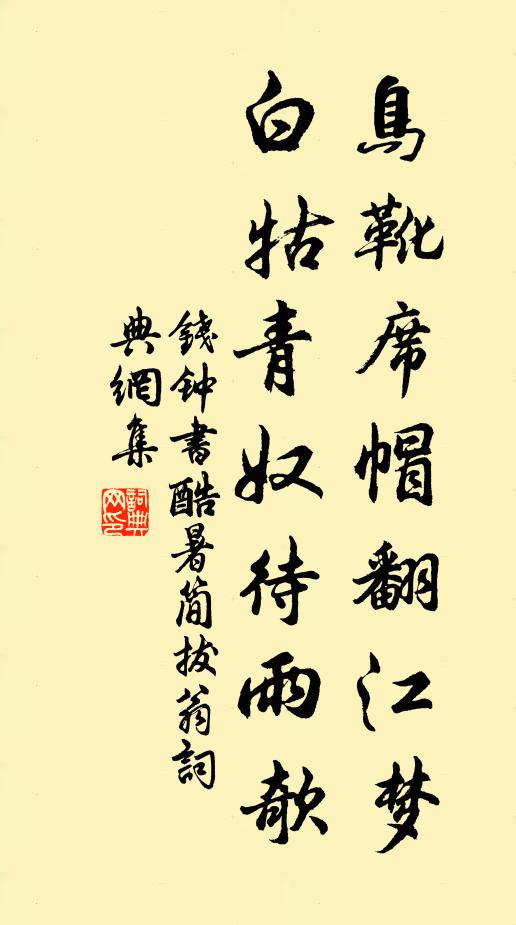 烏靴席帽翻江梦
白牯青奴待雨欹
錢钟書酷暑简拔翁詞
典網集
詞典
网印